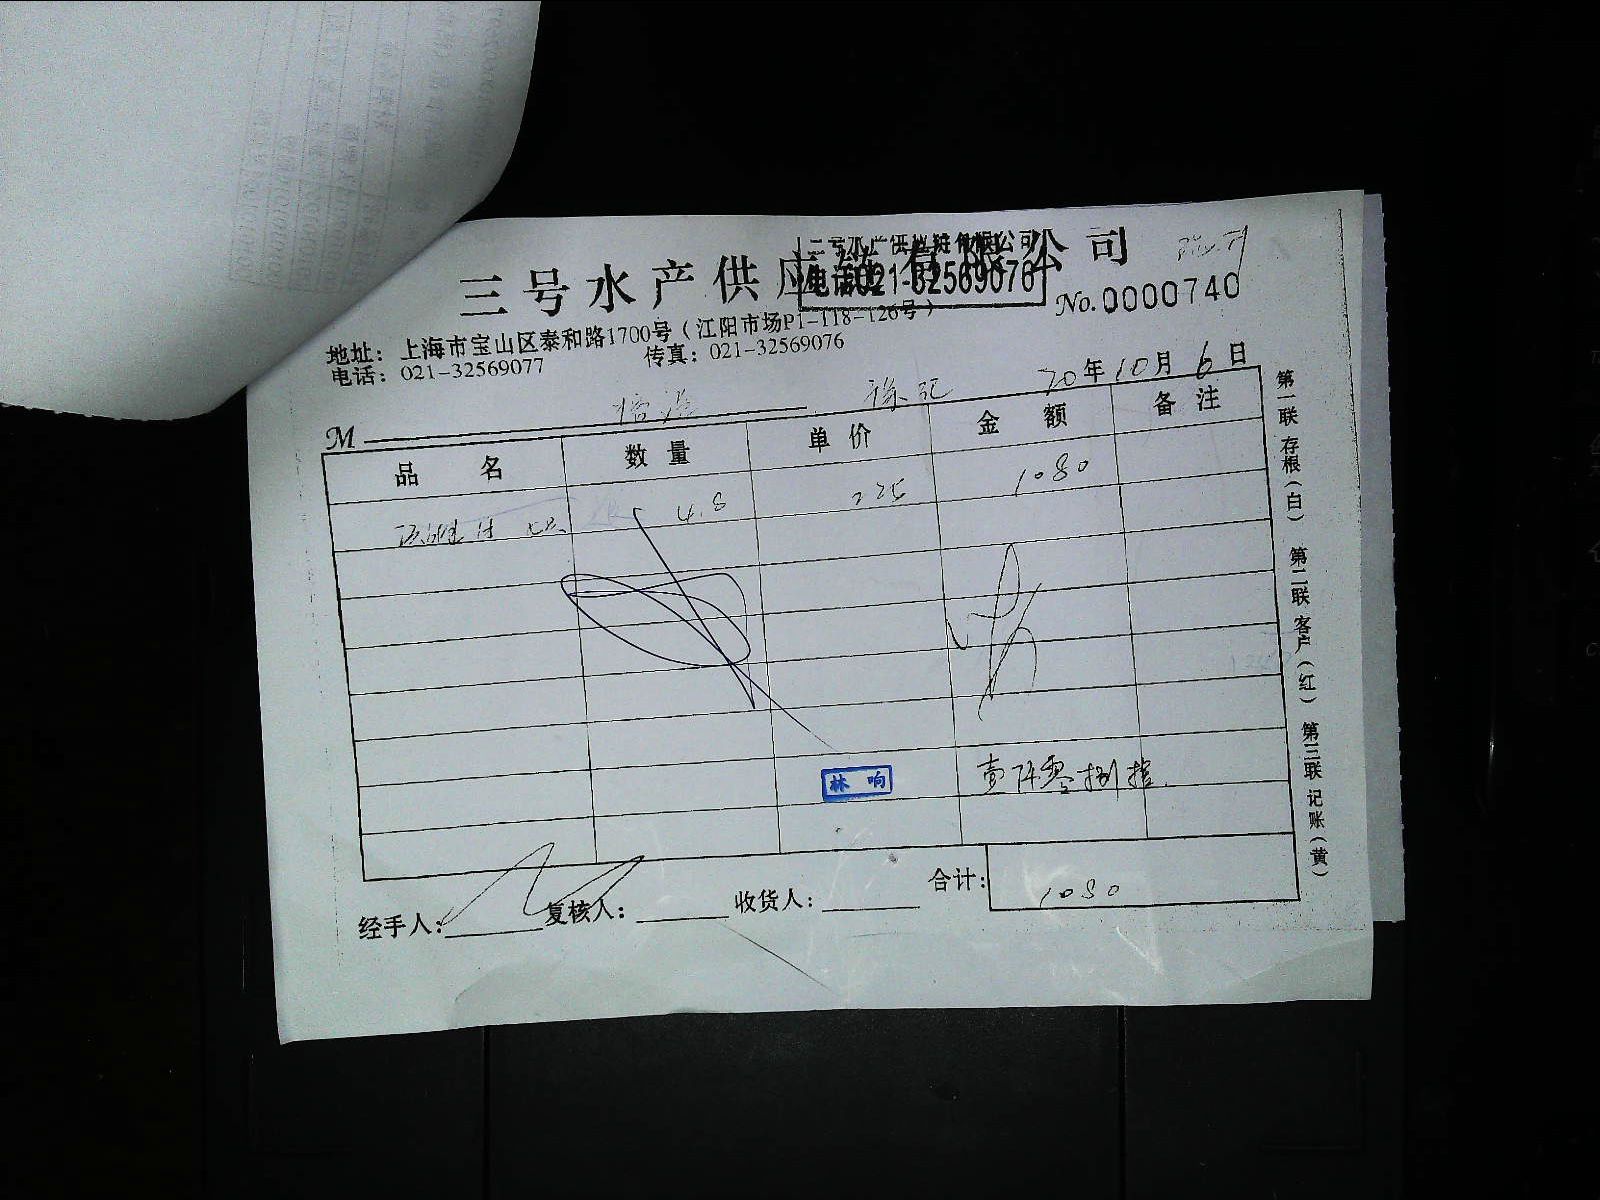 三号水产供应链有限公司
三号水产供应链有限公司
电话:021-32569076
No.0000740
地址：上海市宝山区泰和路1700号（江阳市场P1-118-126号）
电话：021-32569077 传真：021-32569076
20年10月6日
M
品名 数量 单价 金额 备注
4.8 225 1080
林响
壹仟零捌拾
经手人： 复核人： 收货人： 合计： 1080
第一联 存根（白） 第二联 客户（红） 第三联 记账（黄）